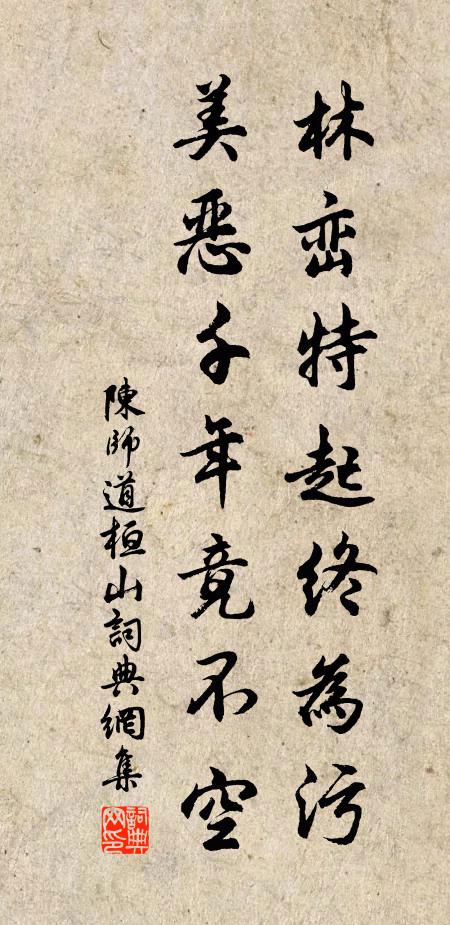 林峦特起終為污
美惡千年竟不空
陳師道桓山詞典網集
詞典網印